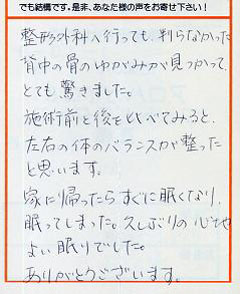 でも結構です。是非、あなた様の声をお寄せ下さい！
整形外科へ行っても、判らなかった
背中の骨のゆがみが見つかって、
とても驚きました。
施術前と後をくらべてみると、
左右の体のバランスが整った
と思います。
家に帰ったらすぐに眠くなり、
眠ってしまった。久しぶりの心地
よい眠りでした。
ありがとうございます。